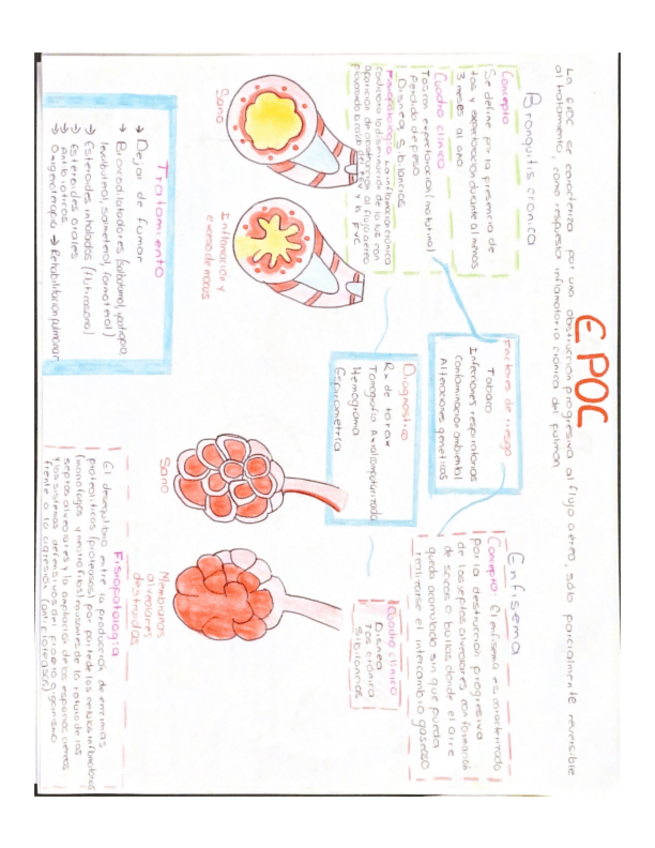 EPOC
La EPOC se caracteriza por una obstrucción progresiva al flujo aéreo, sólo parcialmente reversible
al tratamiento, como respuesta inflamatoria crónica del pulmón
Bronquitis crónica
Concepto
Se define por la presencia de
tos y expectoración durante al menos
3 meses al año
Cuadro clínico
Tos con expectoración (matutina)
Perdida de peso
Disnea, Sibilancias
Fisiopatología: La inflamación crónica
condiciona la disminución de la luz con
aparición de obstrucción al flujo aéreo
provocando la caída del FEV y la FVC
Sano
Inflamación y
exceso de mocus
Tratamiento
→ Dejar de fumar
→ Broncodilatadores (salbutamol,
salmeterol, formoterol)
→ Esteroides inhalados (fluticasona)
→ Esteroides orales
→ Antibioticos
→ Oxigenoterapia → Rehabilitación pulmonar
Factores de riesgo
Tabaco
Infecciones respiratorias
Contaminación ambiental
Alteraciones geneticas
Diagnostico
Rx de torax
Tomografía Axial computarizada
Hemograma
Espirometría
Enfisema
Concepto: El enfisema es caracterizado
por la destrucción progresiva
de los septos alveolares con formación
de sacos o bullas donde el aire
queda acumulado sin que pueda
realizarse el intercambio gaseoso
Cuadro clínico
Disnea
Tos crónica
Sibilancias
Sano
Membranas
alveolares
destruidas
Fisiopatología
El desequilibrio entre la producción de enzimas
proteolíticas (proteasas) por parte de las células inflamatorias
(macrófagos y neutrófilos) causantes de la rotura de los
septos alveolares y la ampliación de los espacios aéreos
y los sistemas defensivos del propio organismo
frente a la agresión (antiproteasas)